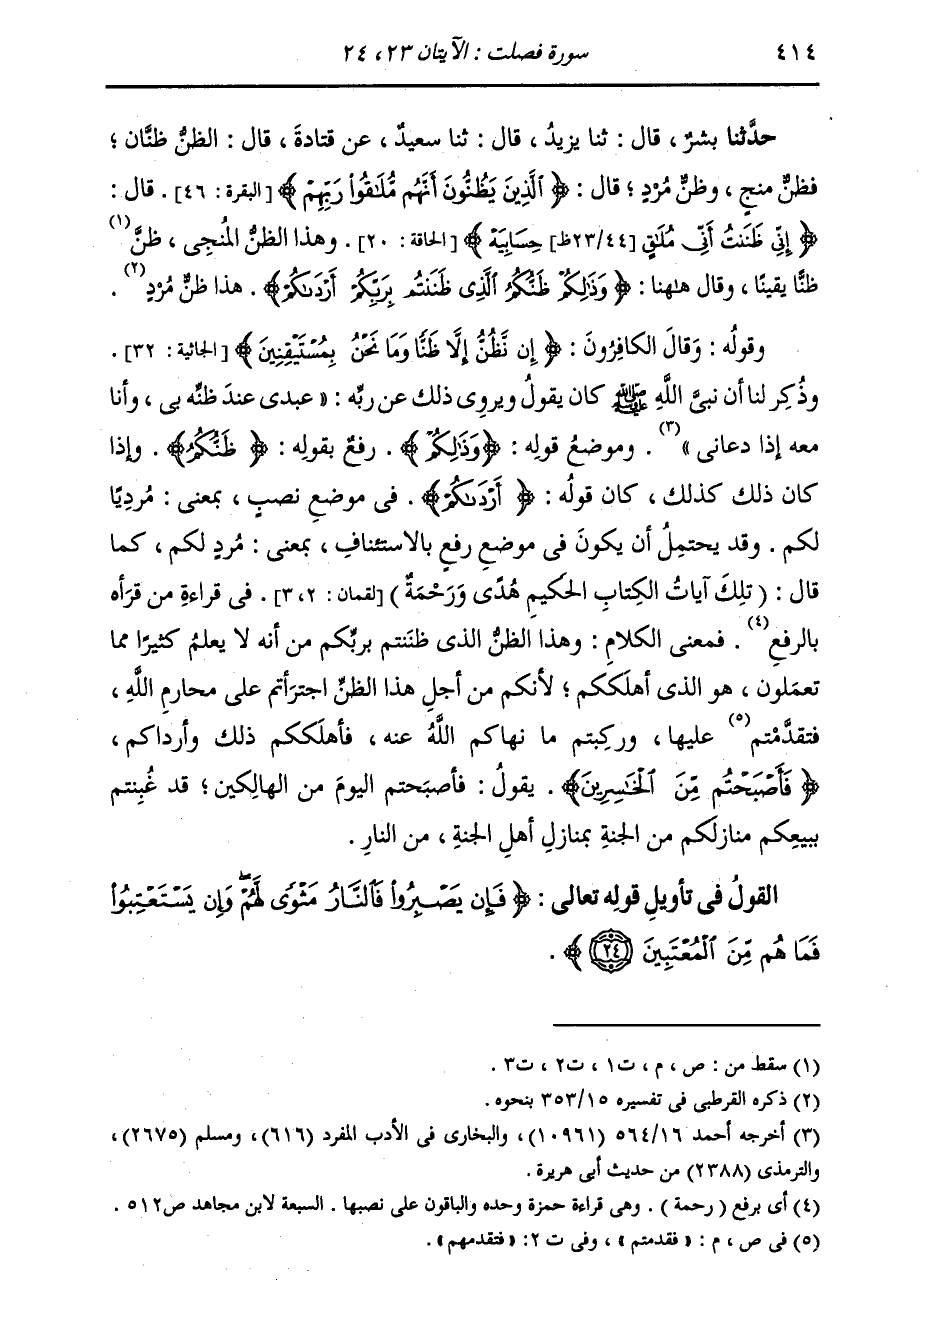 ٤١٤ سورة فصلت : الآيتان ٢٣، ٢٤
حدَّثنا بشرٌ ، قال : ثنا يزيدُ ، قال : ثنا سعيدٌ ، عن قتادةَ ، قال : الظنُّ ظنَّان ؛
فظنٌّ منجٍ ، وظنٌّ مُرْدٍ ؛ قال : ﴿ ٱلَّذِينَ يَظُنُّونَ أَنَّهُم مُّلَٰقُوا۟ رَبِّهِمْ ﴾ [البقرة : ٤٦] . قال :
﴿ إِنِّى ظَنَنتُ أَنِّى مُلَٰقٍ [٢٣/٤٤ظ] حِسَابِيَهْ ﴾ [الحاقة : ٢٠] . وهذا الظنُّ المُنجِى ، ظنَّ(١)
ظنًّا يقينًا ، وقال هلهنا : ﴿ وَذَٰلِكُمْ ظَنُّكُمُ ٱلَّذِى ظَنَنتُم بِرَبِّكُمْ أَرْدَىٰكُمْ ﴾ . هذا ظنٌّ مُرْدٍ(٢) .
وقولُه : وَقالَ الكافِرُونَ : ﴿ إِن نَّظُنُّ إِلَّا ظَنًّا وَمَا نَحْنُ بِمُسْتَيْقِنِينَ ﴾ [الجاثية : ٣٢] .
وذُكِر لنا أن نبىَّ اللَّهِ ﷺ كان يقولُ ويروِى ذلك عن ربِّه : « عبدى عندَ ظنِّه بى ، وأنا
معه إذا دعانى »(٣) . وموضعُ قولِه : ﴿وَذَٰلِكُمْ﴾ . رفعٌ بقولِه : ﴿ ظَنُّكُمُ﴾ . وإذا
كان ذلك كذلك ، كان قولُه : ﴿ أَرْدَىٰكُمْ﴾ . فى موضعِ نصبٍ ، بمعنى : مُردِيًا
لكم . وقد يحتمِلُ أن يكونَ فى موضعِ رفعٍ بالاستئنافِ ، بمعنى : مُردٍ لكم ، كما
قال : ( تلِكَ آياتُ الكِتابِ الحَكيمِ هُدًى وَرَحْمَةٌ ) [لقمان : ٢، ٣] . فى قراءةِ من قرَأه
بالرفعِ(٤) . فمعنى الكلامِ : وهذا الظنُّ الذى ظنَنتم بربِّكم من أنه لا يعلمُ كثيرًا مما
تعمَلون ، هو الذى أهلَككم ؛ لأنكم من أجلِ هذا الظنِّ اجترَأتم على محارمِ اللَّهِ ،
فتقدَّمْتم(٥) عليها ، وركِبتم ما نهاكم اللَّهُ عنه ، فأهلَككم ذلك وأرداكم ،
﴿ فَأَصْبَحْتُم مِّنَ ٱلْخَٰسِرِينَ﴾ . يقولُ : فأصبَحتم اليومَ من الهالِكين ؛ قد غُبِنتم
ببيعِكم منازلَكم من الجنةِ بمنازلِ أهلِ الجنةِ ، من النارِ .
القولُ فى تأويلِ قولِه تعالى : ﴿ فَإِن يَصْبِرُوا۟ فَٱلنَّارُ مَثْوًى لَّهُمْ ۖ وَإِن يَسْتَعْتِبُوا۟
فَمَا هُم مِّنَ ٱلْمُعْتَبِينَ ﴿٢٤﴾ ﴾ .
(١) سقط من : ص ، م ، ت١ ، ت٢ ، ت٣ .
(٢) ذكره القرطبى فى تفسيره ٣٥٣/١٥ بنحوه .
(٣) أخرجه أحمد ٥٦٤/١٦ (١٠٩٦١) ، والبخارى فى الأدب المفرد (٦١٦) ، ومسلم (٢٦٧٥) ،
والترمذى (٢٣٨٨) من حديث أبى هريرة .
(٤) أى برفع ( رحمة ) . وهى قراءة حمزة وحده والباقون على نصبها . السبعة لابن مجاهد ص٥١٢ .
(٥) فى ص ، م : « فقدمتم » ، وفى ت ٢ : « فتقدمهم » .